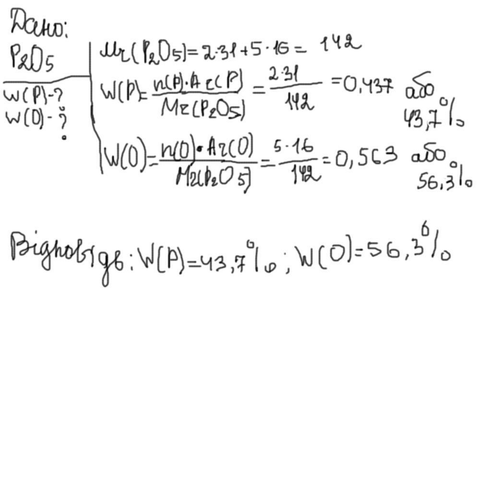 Дано:
P2O5
W(P)-?
W(O)-?
Mr(P2O5)=2·31+5·16= 142
W(P)=n(P)·Ar(P)/Mr(P2O5)=2·31/142=0,437 або 43,7%
W(O)=n(O)·Ar(O)/Mr(P2O5)=5·16/142=0,563 або 56,3%
Відповідь: W(P)=43,7%; W(O)=56,3%